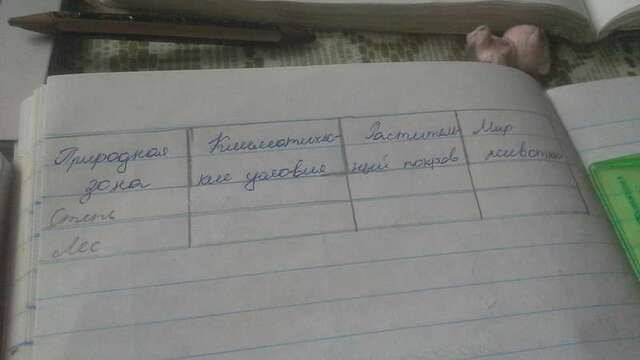 Природная
зона
Климатичес-
кие условия
Раститель-
ный покров
Мир
животных
Степь
Лес